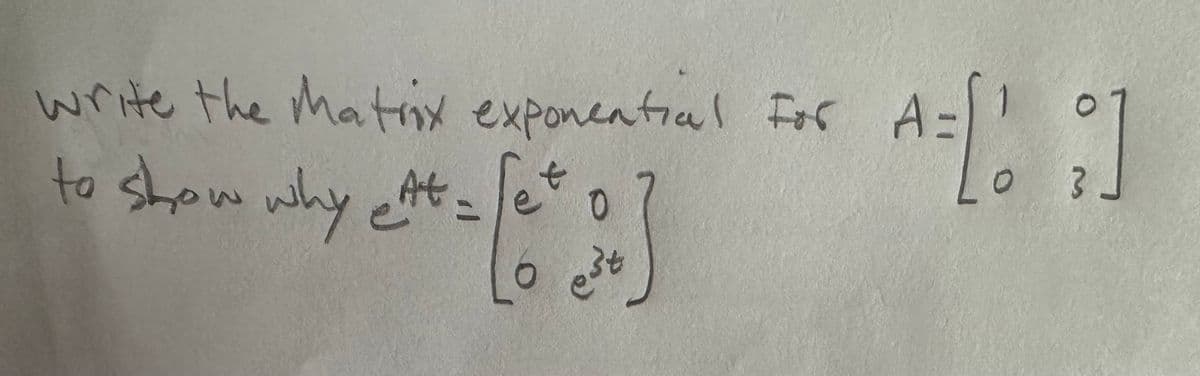 write the Matrix exponential For A = [1 0
to show why e^At = [e^t 0 0 3]
0 e^3t]